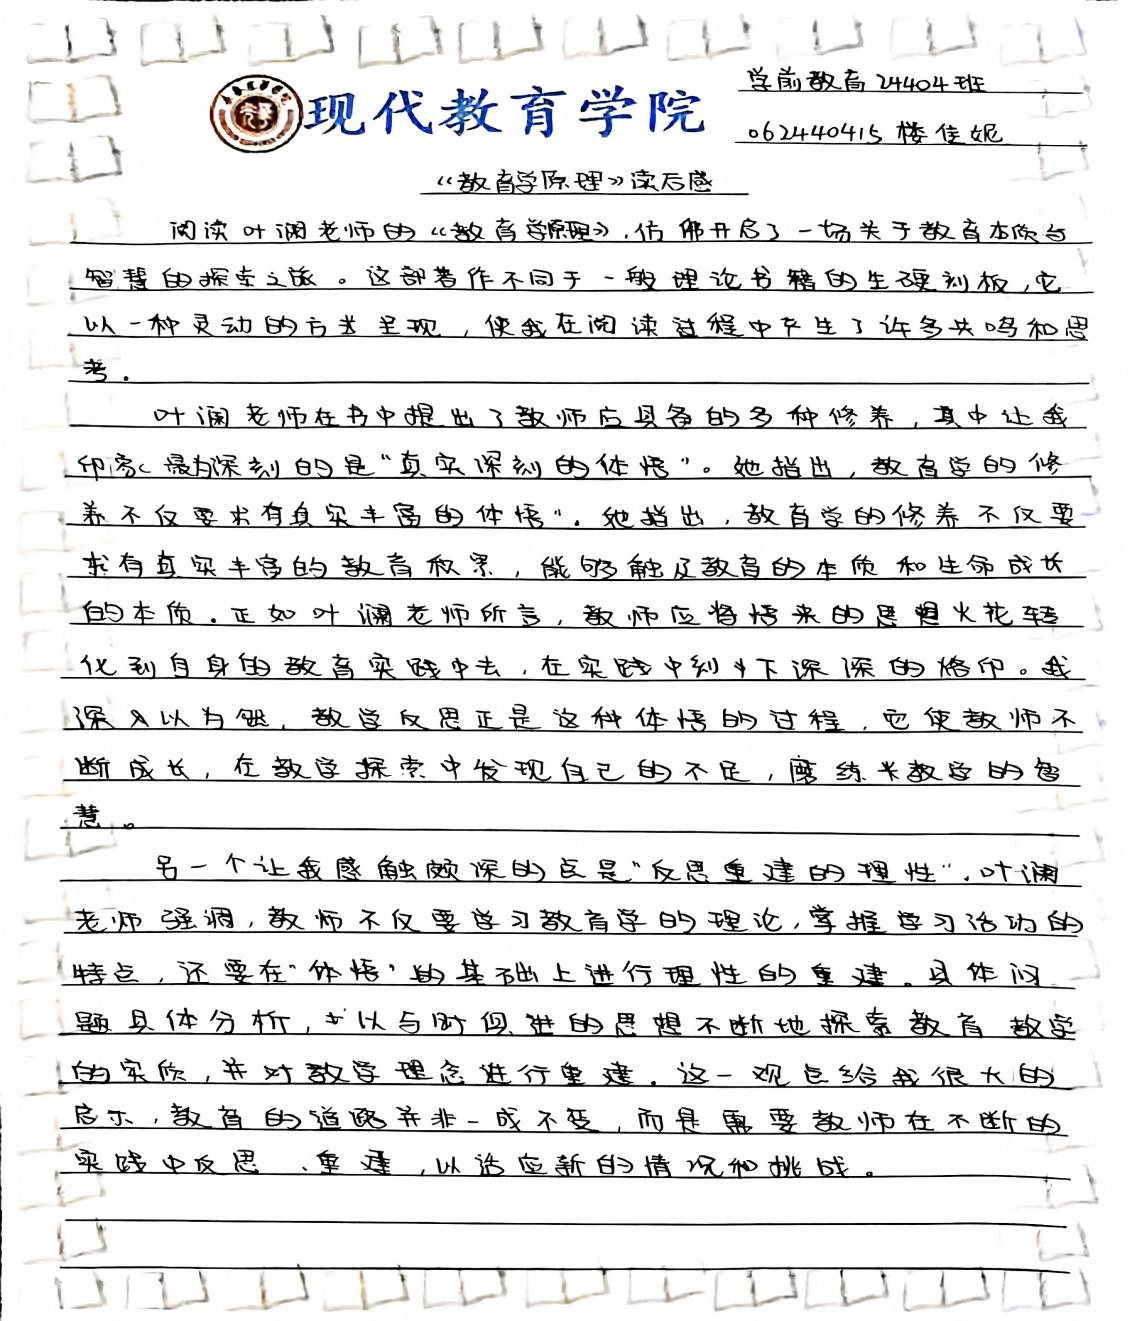 学前教育24404班
现代教育学院
062440415 楼佳妮
《教育学原理》读后感
阅读叶澜老师的《教育学原理》,仿佛开启了一场关于教育本质与
智慧的探索之旅。这部著作不同于一般理论书籍的生硬刻板,它
以一种灵动的方式呈现,使我在阅读过程中产生了许多共鸣和思
考.
叶澜老师在书中提出了教师应具备的多种修养,其中让我
印象最为深刻的是“真实深刻的体悟”。她指出,教育学的修
养不仅要求有真实丰富的体悟”.她指出,教育学的修养不仅要
求有真实丰富的教育积累,能够触及教育的本质和生命成长
的本质.正如叶澜老师所言,教师应将悟来的思想火花转
化到自身的教育实践中去,在实践中刻下深深的烙印。我
深以为然,教学反思正是这种体悟的过程,它使教师不
断成长,在教学探索中发现自己的不足,磨练教学的智
慧。
另一个让我感触颇深的点是“反思重建的理性”.叶澜
老师强调,教师不仅要学习教育学的理论,掌握学习活动的
特点,还要在“体悟”的基础上进行理性的重建。具体问
题具体分析,以与时俱进的思想不断地探索教育教学
的实质,并对教学理念进行重建.这一观点给我很大的
启示,教育的道路并非一成不变,而是需要教师在不断的
实践中反思、重建,以适应新的情况和挑战。